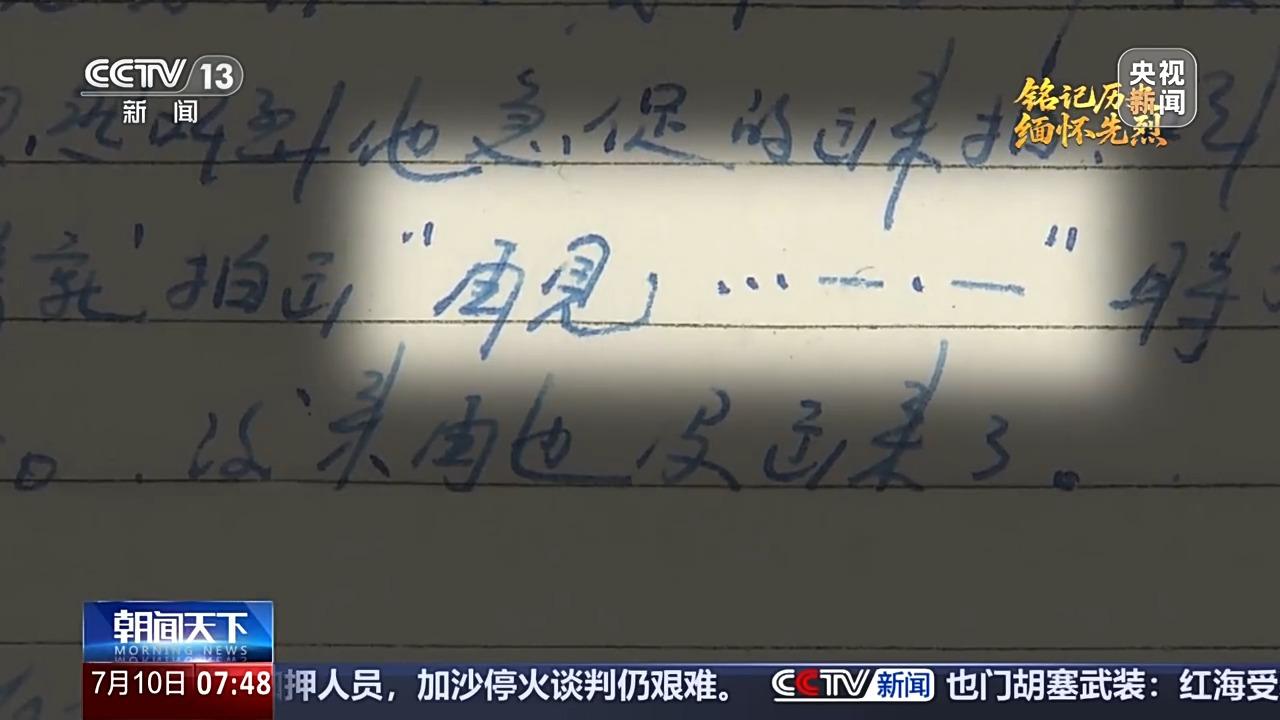 CCTV 13
新闻
央视新闻
铭记历史
缅怀先烈
听到他急促的过来拍
拍过“再見，…—·—”
来再也没过来了。
朝闻天下
MORNING NEWS
7月10日 07:48
押人员，加沙停火谈判仍艰难。 CCTV新闻 也门胡塞武装：红海受